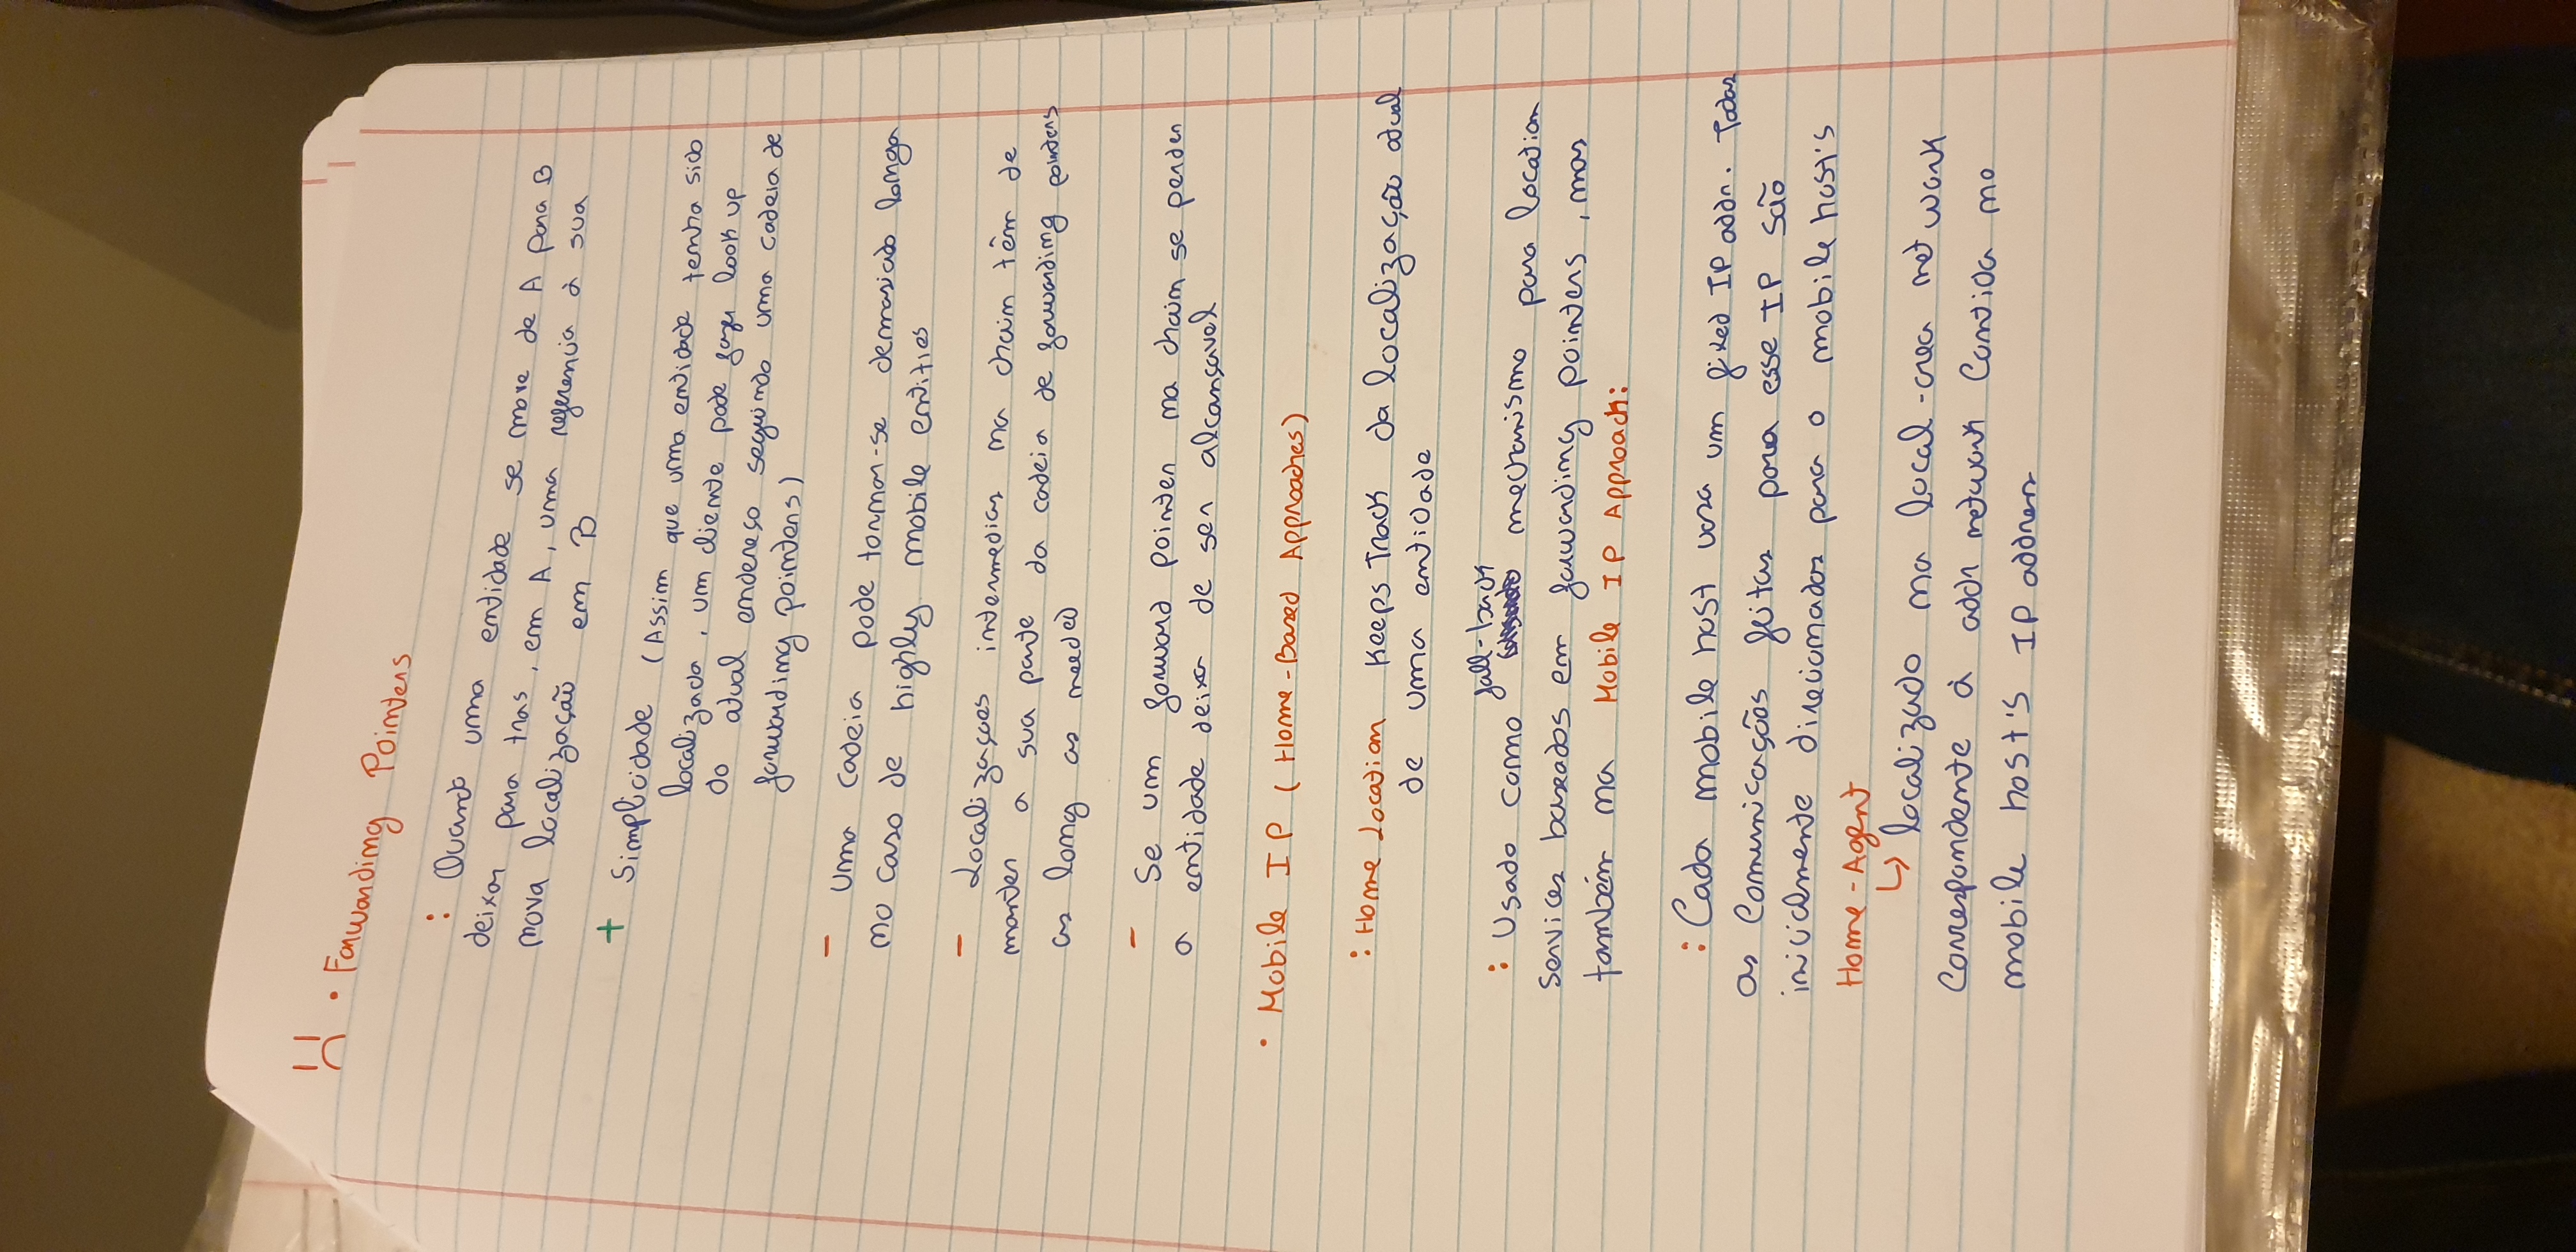 • Forwarding Pointers
: Quando uma entidade se move de A para B
deixar para tras, em A, uma referencia à sua
nova localização em B
+ Simplicidade (Assim que uma entidade tenha sido
localizada, um cliente pode fazer look up
do atual endereço seguindo uma cadeia de
forwarding pointers)
- Uma cadeia pode tornar-se demasiado longa
no caso de highly mobile entities
- Localizaçoes intermedias na chain têm de
manter a sua parte da cadeia de forwarding pointers
as long as needed
- Se um forward pointer na chain se perder
a entidade deixa de ser alcansavel
• Mobile IP (Home-Based Approaches)
: Home Location Keeps Track da localização atual
de uma entidade
fall-back
: Usado como mechanismo para location
services baseados em forwarding pointers, mas
também na Mobile IP Approach:
: Cada mobile host usa um fixed IP addr. Todas
as Comunicações feitas para esse IP são
inicialmente direcionadas para o mobile host's
Home-Agent
↳ localizado na local-area network
Correspondente à addr network Contida no
mobile host's IP address